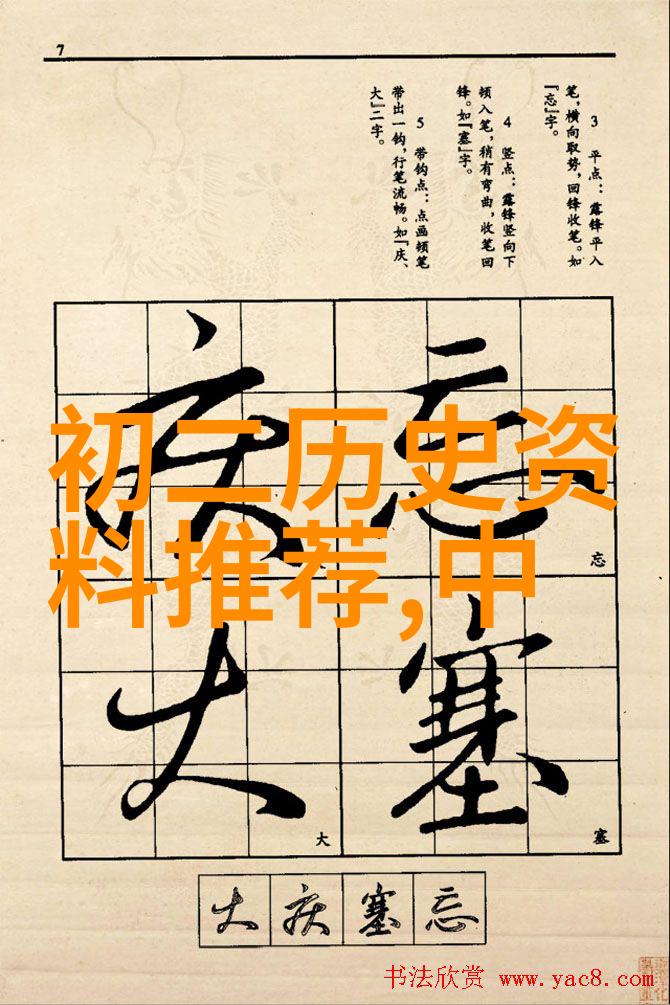 7
3 平点：露锋平入
笔，横向取势，回锋收笔。如
『忘』字。
4 竖点：露锋竖向下
顿入笔，稍有弯曲，收笔回
锋。如『塞』字。
5 带钩点：点画顿笔
带出一钩，行笔流畅。如『庆、
大』二字。
忘
塞
庆
大
忘
塞
大
初二历史资
料推荐,中
大庆塞忘
书法欣赏 www.yac8.com